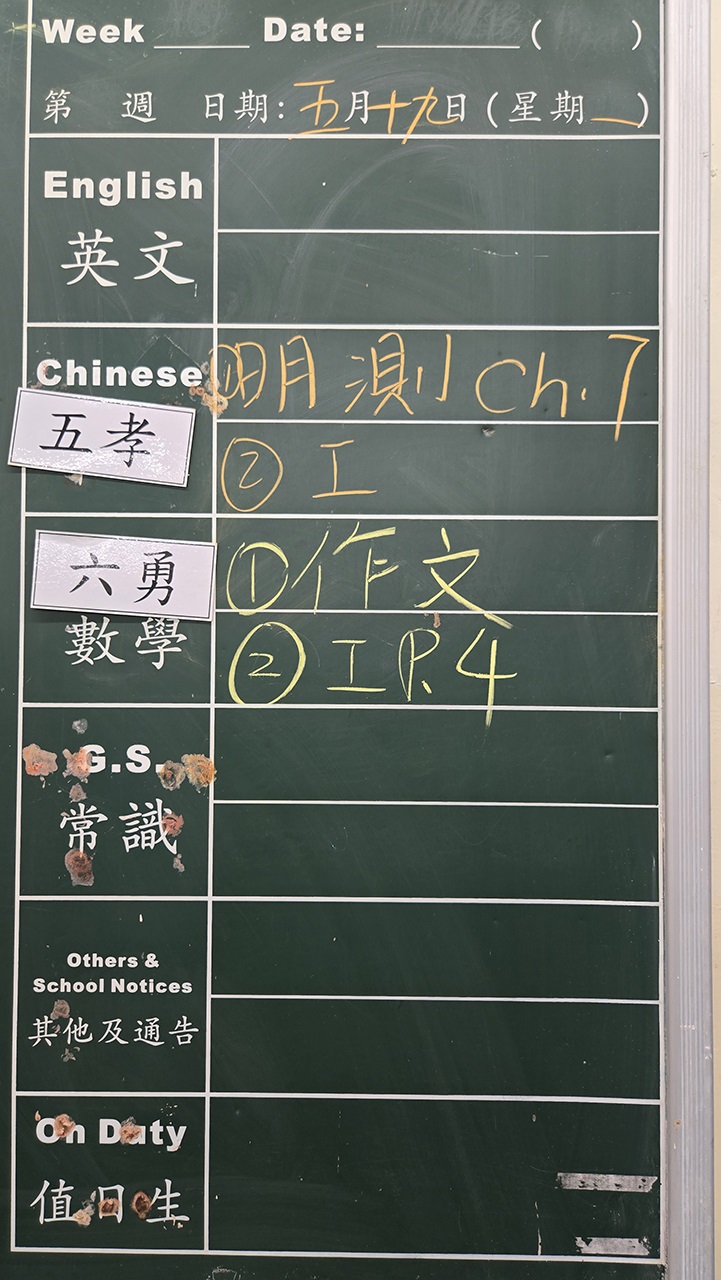 Week ____ Date: ________ ( )
第 週 日期: 五月十九日 (星期一)
English
英文
Chinese
①明測 Ch.7
五孝
② 工
六勇
①作文
數學
② 工 P.4
G.S.
常識
Others &
School Notices
其他及通告
On Duty
值日生